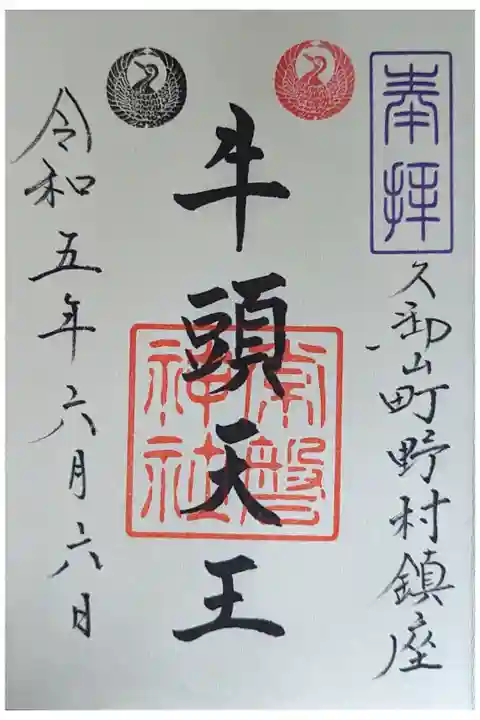 奉拝
久御山町野村鎮座
牛頭天王
常盤
神社
令和五年六月六日